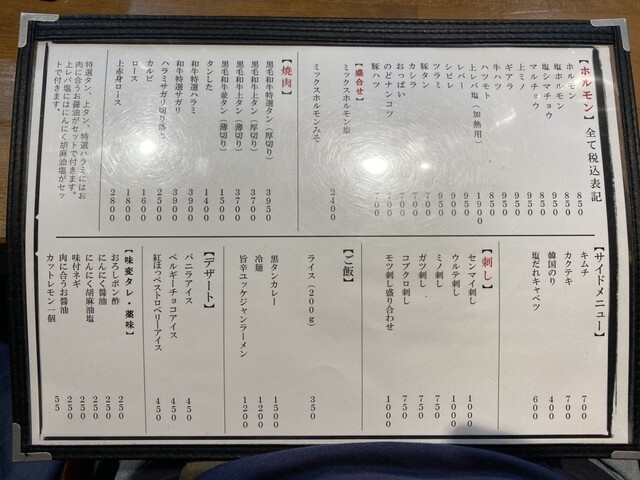 【ホルモン】全て税込表記
ホルモン 850
塩ホルモン 850
塩シマチョウ 950
マルチョウ 950
上ミノ 950
ギアラ 850
牛ハツ 850
ハツモト 850
上レバ塩（加熱用） 1900
レバー 950
シビレ 950
ツラミ 950
豚タン 700
カシラ 700
おっぱい 700
のどナンコツ 700
豚ハツ 700
【盛合せ】
ミックスホルモン塩
ミックスホルモンみそ 2400
【焼肉】
黒毛和牛特選タン（厚切り） 3950
黒毛和牛上タン（厚切り） 3700
黒毛和牛上タン（薄切り） 3700
黒毛和牛並タン（薄切り） 1500
タンした 1400
和牛特選ハラミ 3900
和牛特選サガリ 3900
ハラミサガリ切り落とし 2500
カルビ 1600
ロース 1800
上赤身ロース 2800
特選タン、上タン、特選ハラミにはお
肉に合うお醤油がセットで付きます。
上レバ塩にはにんにく胡麻油塩がセッ
トで付きます。
【サイドメニュー】
キムチ 700
カクテキ 700
韓国のり 400
塩だれキャベツ 600
【刺し】
センマイ刺し 1000
ウルテ刺し 1000
ミノ刺し 750
ガツ刺し 750
コブクロ刺し 750
モツ刺し盛り合わせ 1000
【ご飯】
ライス（200g） 350
黒タンカレー 1500
冷麺 1200
旨辛ユッケジャンラーメン 1200
【デザート】
バニラアイス 450
ベルギーチョコアイス 450
紅ほっぺストロベリーアイス 450
【味変タレ・薬味】
おろしポン酢 250
にんにく醤油 250
にんにく胡麻油塩 250
味付ネギ 250
肉に合うお醤油 250
カットレモン一個 55